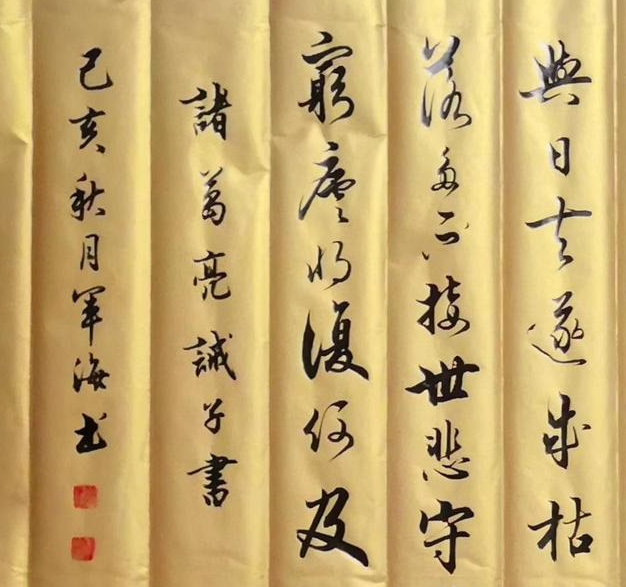 與日去遂成枯
落多不接世悲守
窮廬將復何及
諸葛亮誡子書
己亥秋月軍海书